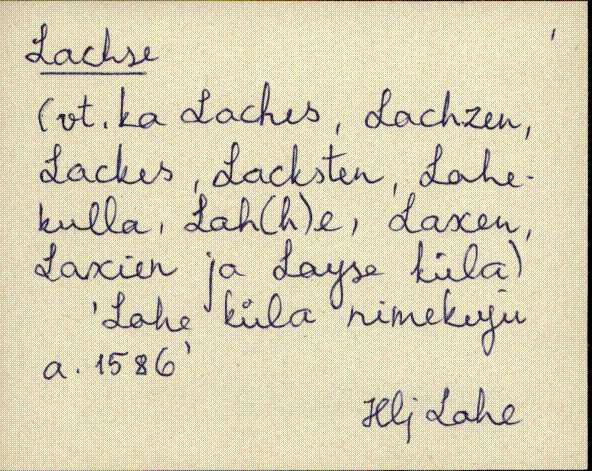 Lachse
(vt. ka Laches, Lachzen,
Lackes, Lacksten, Lahe-
kulla, Lah(h)e, Laxen,
Laxien ja Layse küla)
'Lahe küla nimekuju
a. 1586'
Hlj Lahe